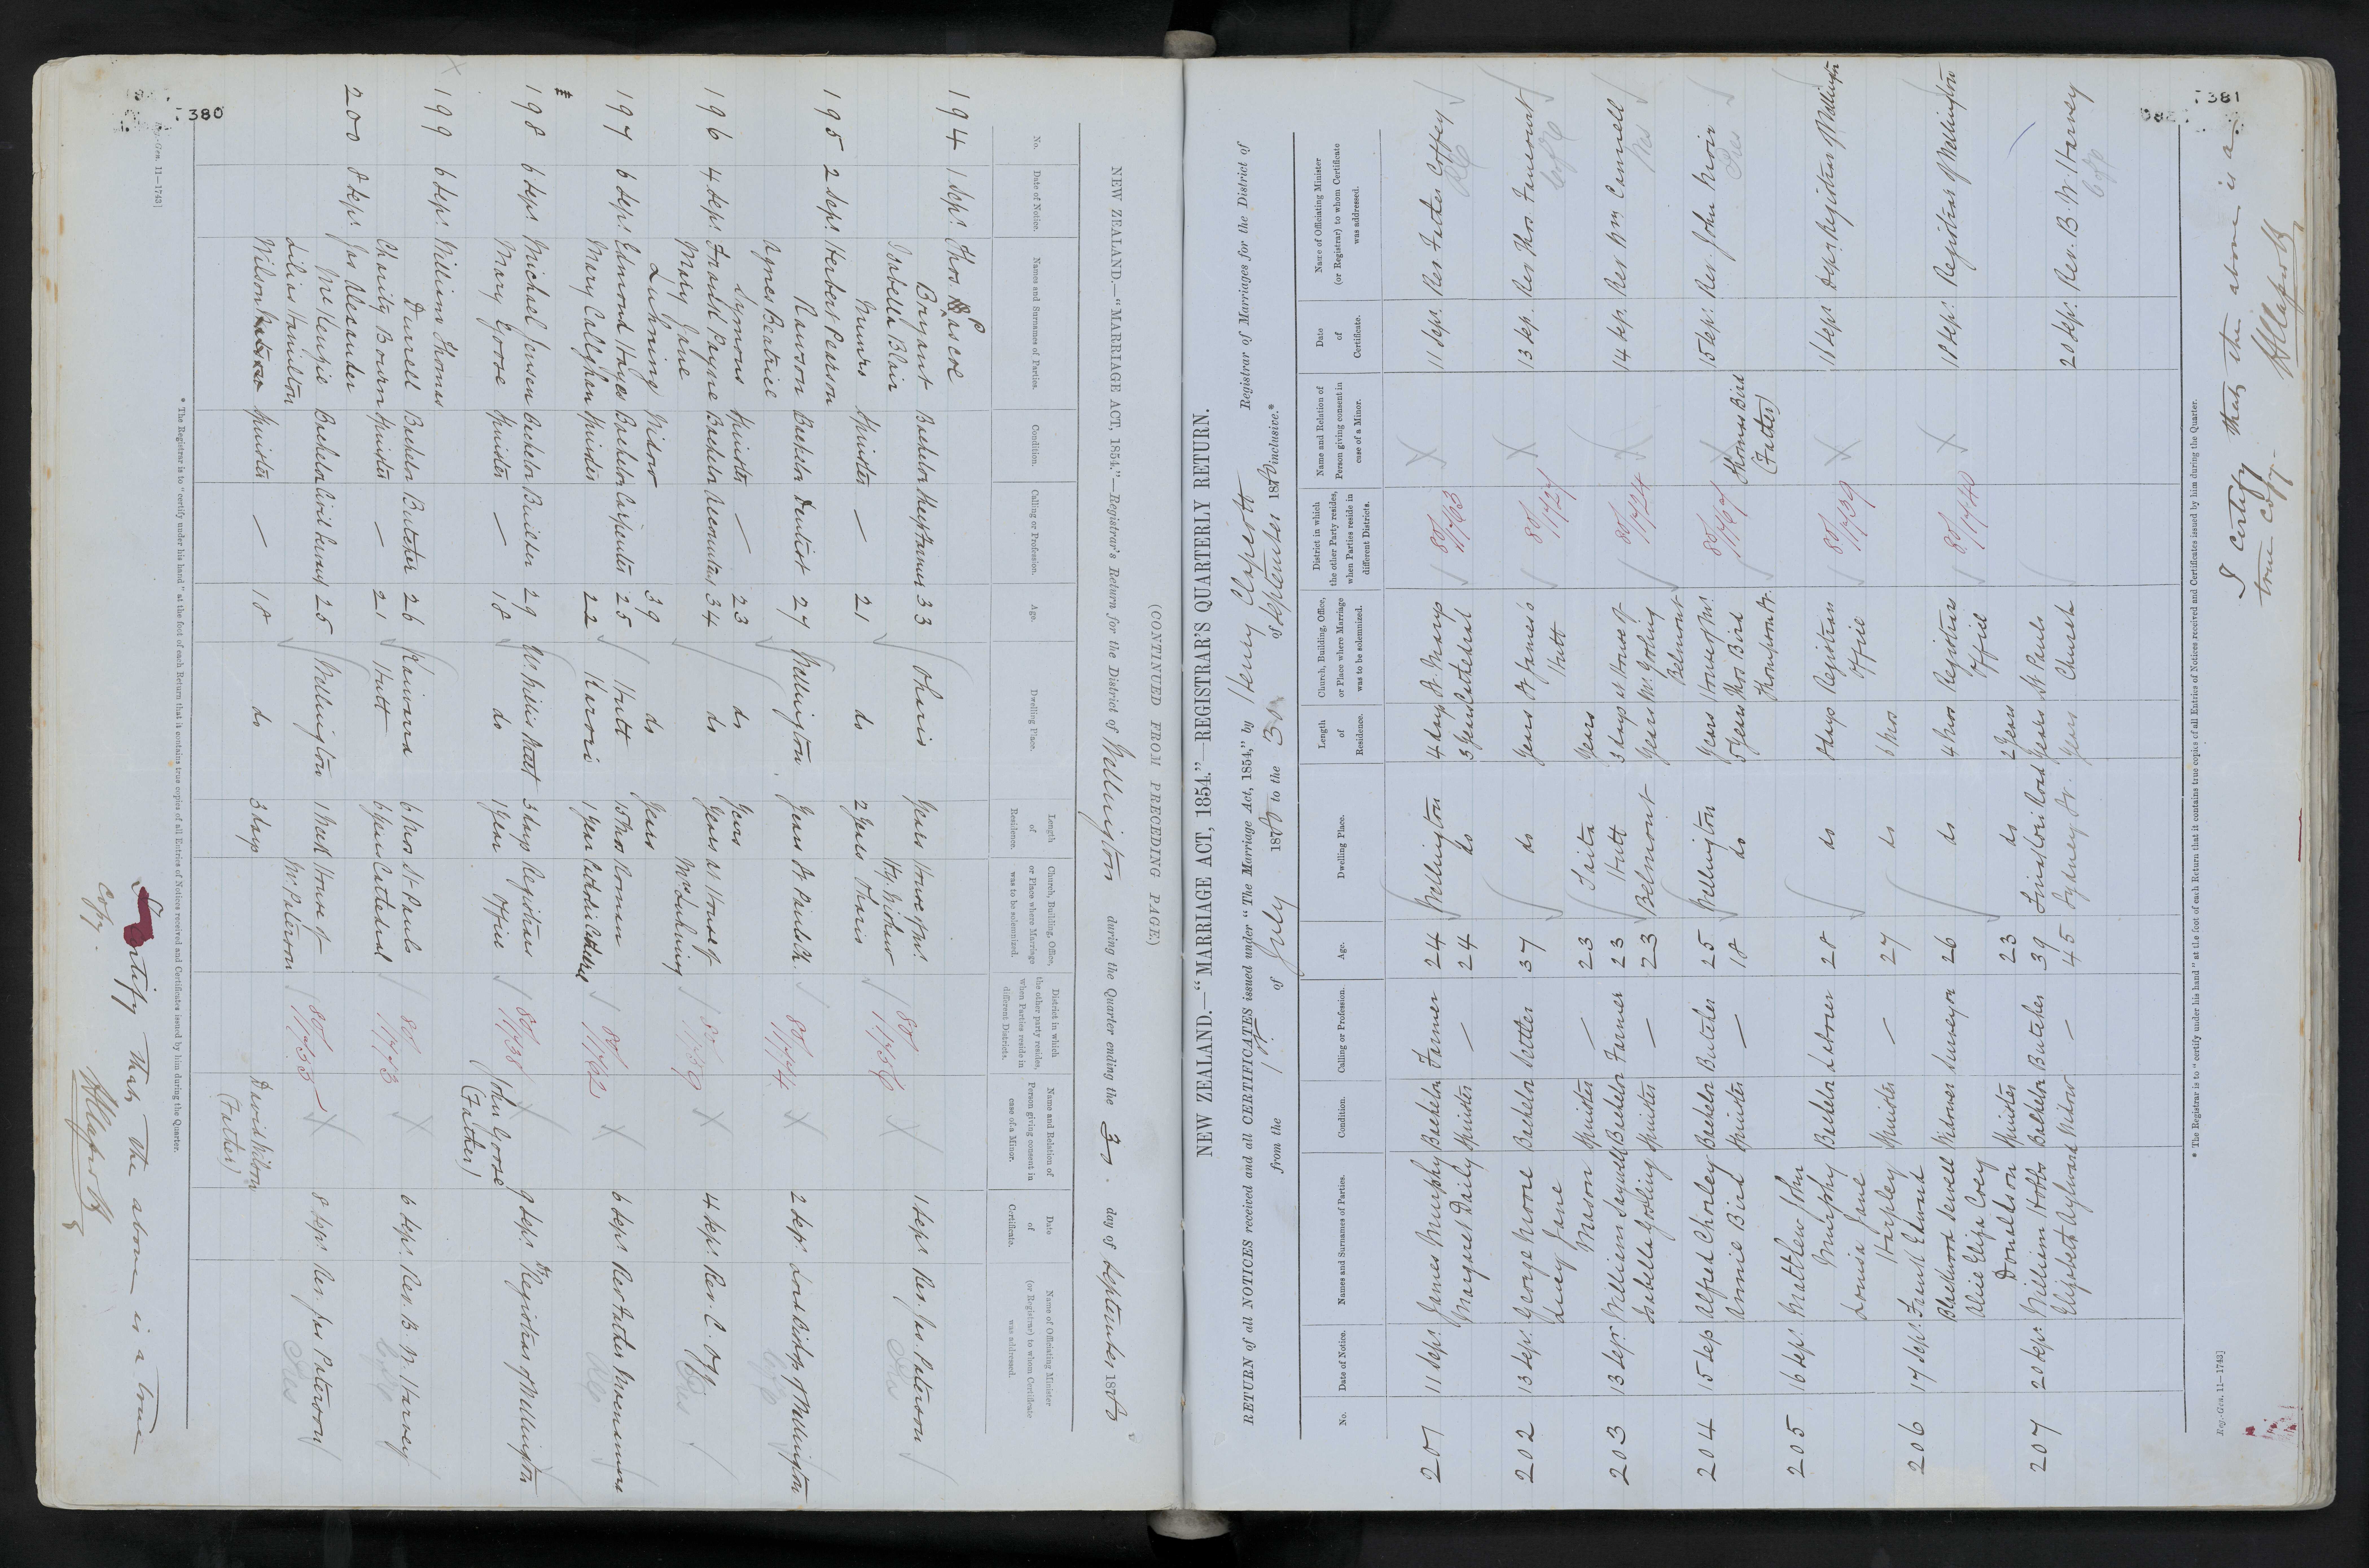 380
NEW ZEALAND.—"MARRIAGE ACT, 1854."—Registrar's Return for the District of Wellington during the Quarter ending the 30 day of September 1880
(CONTINUED FROM PRECEDING PAGE)
No.
Date of Notice.
Names and Surnames of Parties.
Condition.
Calling or Profession.
Age.
Dwelling Place.
Length of Residence.
Church, Building, Office, or Place where Marriage was to be solemnized.
District in which the other party resides, when Parties reside in different Districts.
Name and Relation of Person giving consent in case of a Minor.
Date of Certificate.
Name of Officiating Minister (or Registrar) to whom Certificate was addressed.
194 1 Sept. Thos. Pascoe
Bryant Bachelor 33 Ohariu Years House of Mr. 80/1756 X 1 Sept Rev. Jas Paterson
Isabella Blair Hy. Bidmead Pres
Munro Spinster — 21 do 2 Years Ohariu
195 2 Sept. Herbert Pearson
Rawson Bachelor Dentist 27 Wellington Years St Pauls Ch. 80/1744 X 2 Sept. Lord Bishop of Wellington
Agnes Beatrice C of E
Symons Spinster — 23 do Years
196 4 Sept. Bachelor Accountant 34 do Years at House of 80/1759 X 4 Sept. Rev. C. Ogg
Mary Jane Mrs Luhning Pres
Luhning Widow 39 do Years
197 6 Sept. Edmond Hayes Bachelor Carpenter 25 Hutt 15 Mos Roman 80/1762 X 6 Sept Rev Father
Mary Callaghan Spinster 22 Karori 1 Year Catholic Cathedral RC
198 6 Sept. Michael Jensen Bachelor Builder 29 W. Willis Street 3 days Registrars 80/1738 X John Goose 9 Sept. Registrar of Wellington
Mary Goose Spinster — 18 do 1 Year Office (Father)
X
199 6 Sept. William Thomas
Durrell Bachelor Butcher 26 Kaiwarra 6 Mos St Pauls 80/1743 X 6 Sept. Rev. B. W. Harvey
Charity Bourn Spinster — 21 Hutt 6 Years Cathedral C of E
200 8 Sept. Jas Alexander
McKenzie Bachelor Civil Servant 25 Wellington 1 Week House of 80/1755 X 8 Sept. Rev. Jas Paterson
Lilias Hamilton Mr Paterson Pres
Wilson Spinster — 18 do 3 days David Wilson
(Father)
* The Registrar is to "certify under his hand" at the foot of each Return that it contains true copies of all Entries of Notices received and Certificates issued by him during the Quarter.
Reg.-Gen. 11—1743]
I certify that the above is a true
copy.
381
NEW ZEALAND.—"MARRIAGE ACT, 1854."—REGISTRAR'S QUARTERLY RETURN.
RETURN of all NOTICES received and all CERTIFICATES issued under "The Marriage Act, 1854," by Henry Claperton Registrar of Marriages for the District of
from the 1st of July 1880 to the 30 of September 1880 inclusive.*
No.
Date of Notice.
Names and Surnames of Parties.
Condition.
Calling or Profession.
Age.
Dwelling Place.
Length of Residence.
Church, Building, Office, or Place where Marriage was to be solemnized.
District in which the other Party resides, when Parties reside in different Districts.
Name and Relation of Person giving consent in case of a Minor.
Date of Certificate.
Name of Officiating Minister (or Registrar) to whom Certificate was addressed.
201 11 Sept. James Murphy Bachelor Farmer 24 Wellington 4 days St. Marys 80/1763 X 11 Sept. Rev Father Coffey
Margaret Daily Spinster — 24 do 3 Years Cathedral RC
202 13 Sept. George Moore Bachelor Settler 37 do Years St James's 80/1727 X 13 Sep. Rev Thos. Fancourt
Lucy Jane Hutt C of E
Mason Spinster — 23 Taita Years
203 13 Sept. William Bachelor Farmer 23 Hutt 3 days at House of 80/1724 X 14 Sep. Rev Wm Cannell
Isabella Gosling Spinster — 23 Belmont Years Mr. Gosling Wes
Belmont
204 15 Sep Alfred Chorley Bachelor Butcher 25 Wellington Years House of Mr. 80/1767 X 15 Sept. Rev. John Moir
Annie Bird Spinster — 18 do 5 Years Thos Bird Thomas Bird Pres
Thompson St. (Father)
205 16 Sept. Matthew John
Murphy Bachelor Labourer 28 do 8 days Registrars 80/1739 X Dep. Registrar of Wellington
Louisa Jane Office
Harpley Spinster — 27 do 6 Mos
206 17 Sept. Edward
Sewell Widower Surveyor 26 do 4 Mos Registrars 80/1740 X 18 Sept. Registrar of Wellington
Alice Eliza Office
Donaldson Spinster 23 do 2 Years
207 20 Sept. William Hobbs Bachelor Butcher 39 Tinakori Road Years St. Pauls 20 Sept. Rev. B. W. Harvey
Elizabeth Aylward Widow — 45 Sydney St. Years Church C of E
* The Registrar is to "certify under his hand" at the foot of each Return that it contains true copies of all Entries of Notices received and Certificates issued by him during the Quarter.
Reg.-Gen. 11—1743]
I certify that the above is a
true copy.